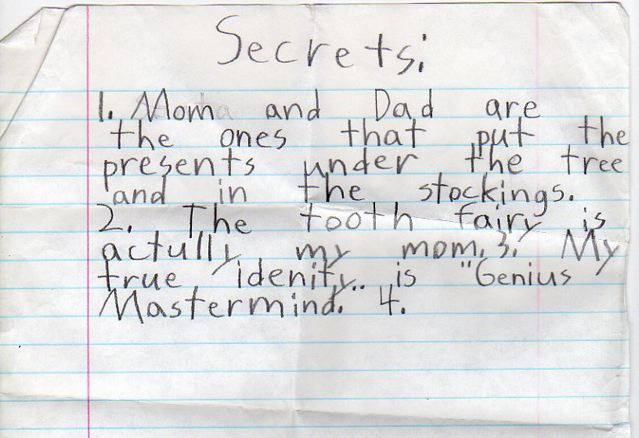 Secrets:
1. Mom and Dad are
the ones that put the
presents under the tree
and in the stockings.
2. The tooth fairy is
actully my mom. 3. My
true idenity.. is "Genius
Mastermind. 4.